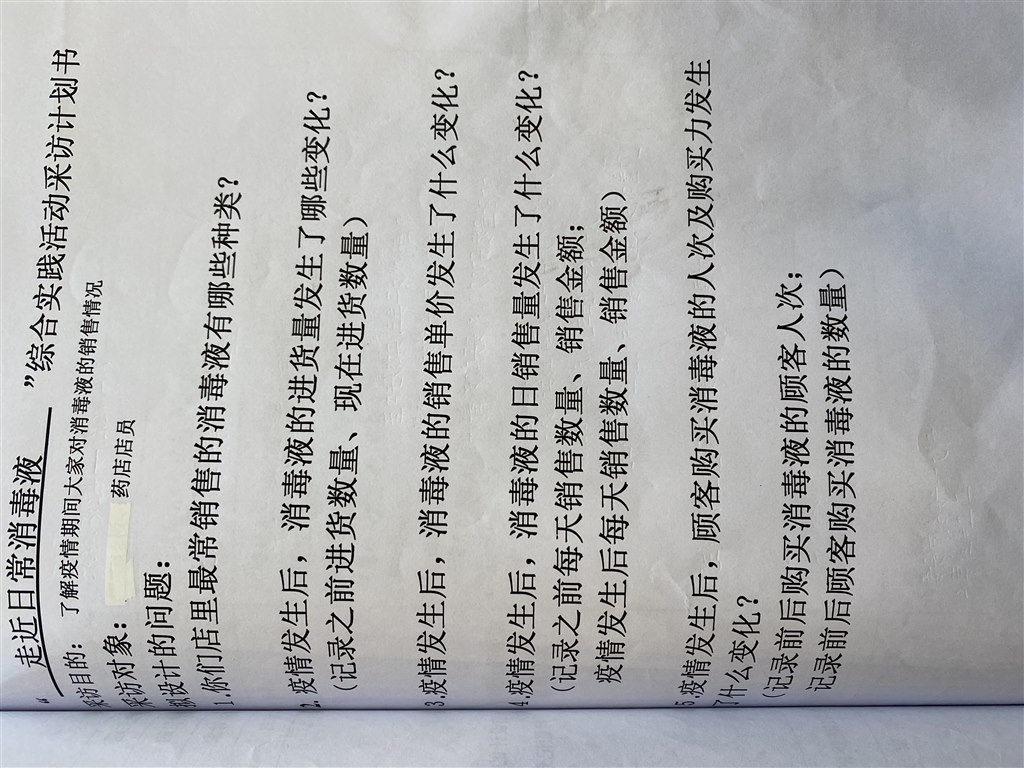 “ 走近日常消毒液 ”综合实践活动采访计划书
采访目的： 了解疫情期间大家对消毒液的销售情况
采访对象： 药店店员
拟设计的问题：
1.你们店里最常销售的消毒液有哪些种类？
2.疫情发生后，消毒液的进货量发生了哪些变化？
（记录之前进货数量、现在进货数量）
3.疫情发生后，消毒液的销售单价发生了什么变化？
4.疫情发生后，消毒液的日销售量发生了什么变化？
（记录之前每天销售数量、销售金额；
疫情发生后每天销售数量、销售金额）
5.疫情发生后，顾客购买消毒液的人次及购买力发生
了什么变化？
（记录前后购买消毒液的顾客人次；
记录前后顾客购买消毒液的数量）